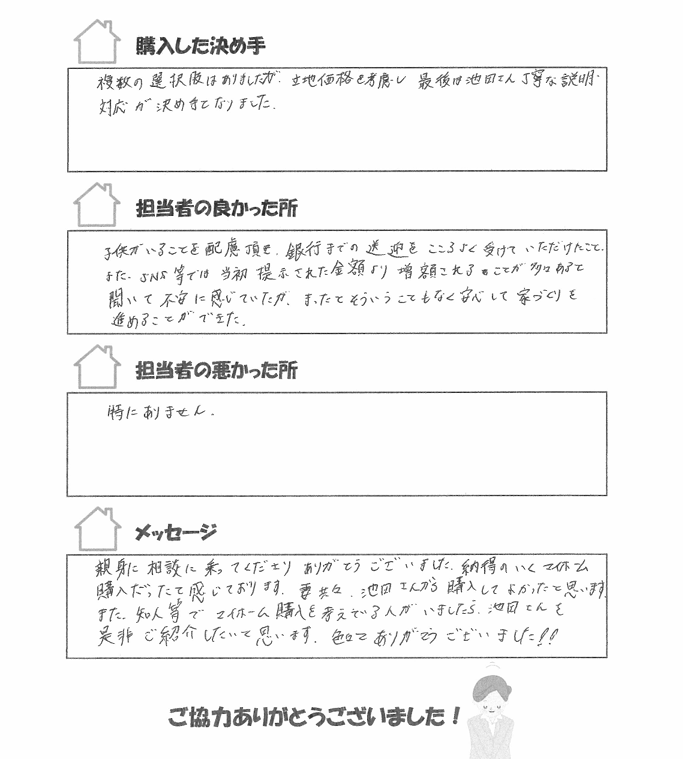 購入した決め手
複数の選択肢はありましたが、立地価格を考慮し 最後は池田さん丁寧な説明・
対応が決め手となりました。
担当者の良かった所
子供がいることを配慮頂き、銀行までの送迎をこころよく受けていただけたこと。
また、SNS等では当初提示された金額より増額されることが多々あると
聞いて不安に感じていたが、まったくそういうこともなく安心して家づくりを
進めることができた。
担当者の悪かった所
特にありません。
メッセージ
親身に相談に乗ってくださり ありがとうございました。納得のいくマイホーム
購入だったと感じております。妻共々、池田さんから購入してよかったと思います。
また、知人等でマイホーム購入を考えている人がいましたら、池田さんを
是非ご紹介したいと思います。色々とありがとうございました!!
ご協力ありがとうございました!